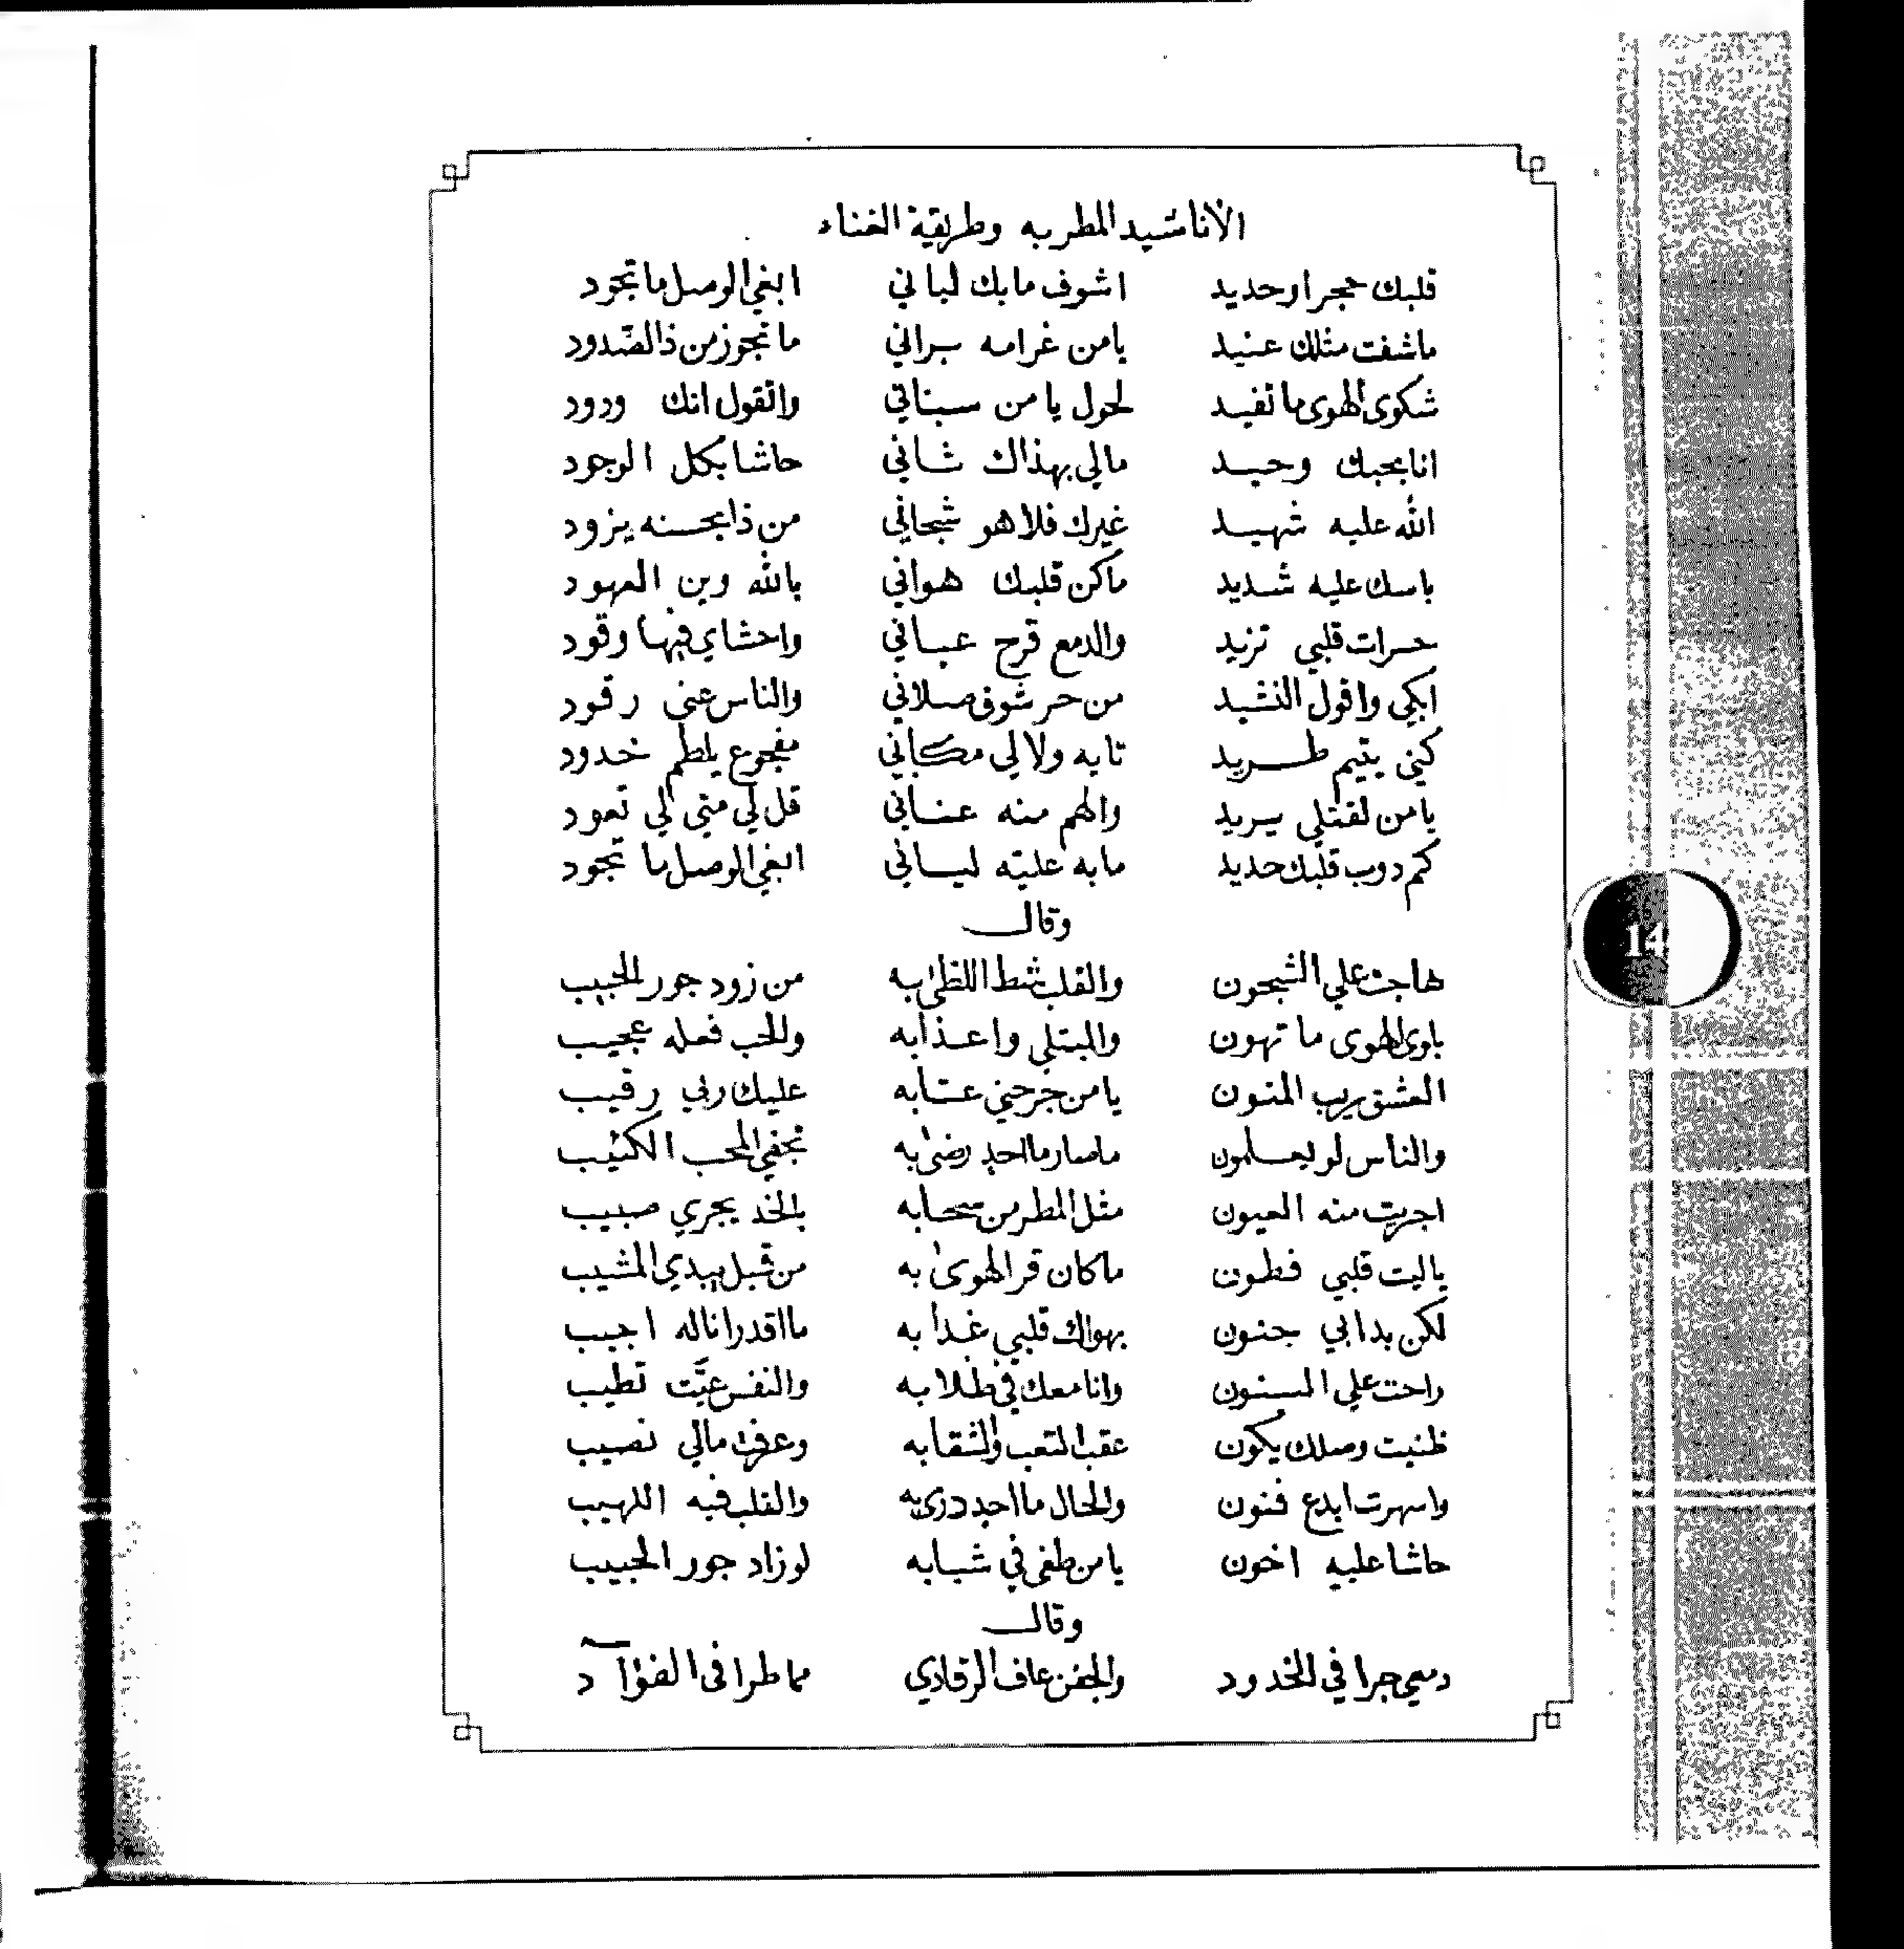 الأناشيد المطربه وطريقة الغناء
قلبك حجر او حديد اشوف مابك لباني ابغي الوصل ما تجود
ماشفت مثلك عنيد يامن غرامه براني ما تجوز من ذا الصّدود
شكوى الهوى ما تفيد لحول يا من سباني واتقول انك ودود
انا بحبك وحيد مالي بهذاك ثاني حاشا بكل الوجود
الله عليه شهيد غيرك فلا هو شجاني من ذا بحسنه يزود
باسك عليه شديد ماكن قلبك هواني بالله وين العهود
حسرات قلبي تزيد والدمع قرح عياني واحشاي فيها وقود
ابكي واقول النشيد من حر شوق صلاني والناس عني رقود
كني يتيم طريد تايه ولا لي مكاني مفجوع يلطم خدود
يامن لقتلي يريد والهم منه عناني قل لي متى لي تعود
كم دوب قلبك حديد مابه عليّه لياني ابغي الوصل ما تجود
وقال
هاجت علي الشجون والقلب شط اللظى به من زود جور الحبيب
بلوى الهوى ما تهون والمبتلي واعذابه والحب فعله عجيب
العشق ريب المنون يا من جرحني عتابه عليك ربي رقيب
والناس لو يعلمون ماصار ما احدٍ رضى به تجفي المحب الكئيب
اجريت منه العيون مثل المطر من سحابه بالخد يجري صبيب
ياليت قلبي فطون ماكان قر الهوى به من قبل يبدي المشيب
لكن بدابي جنون بهواك قلبي غدا به ما اقدر اناله اجيب
راحت علي السنون وانا معك في طلابه والنفس عيّت تطيب
ظنيت وصلك يكون عقب التعب والشقابه وعرفت مالي نصيب
واسهرت ابدع فنون والحال ما احدٍ درى به والقلب فيه اللهيب
حاشا عليه اخون يا من طغى في شبابه لو زاد جور الحبيب
وقال
دمعي جرا في الخدود والجفن عاف الرقادي مما طرا في الفؤاد
14